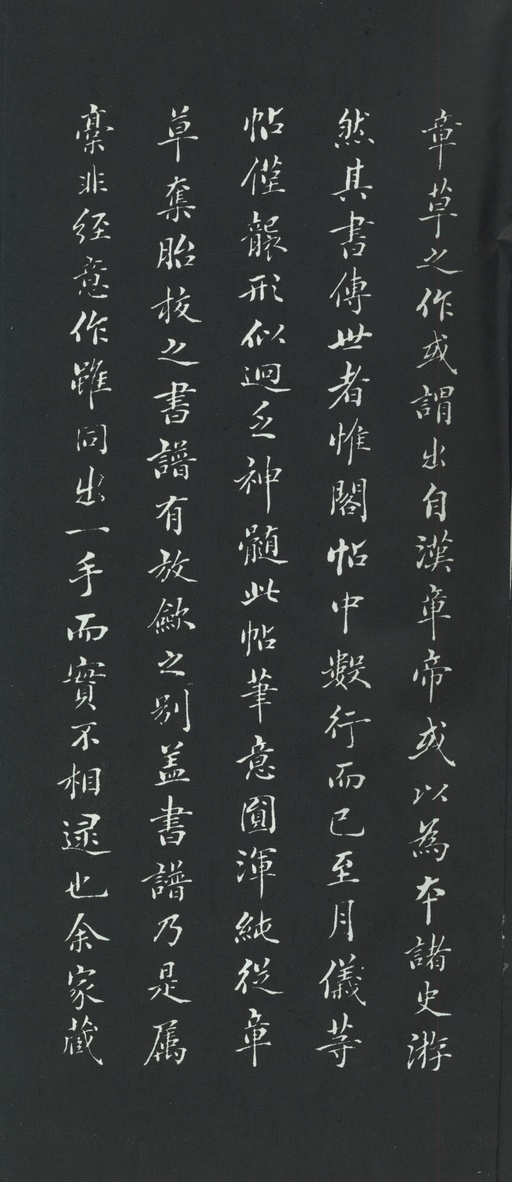 章草之作或謂出自漢章帝或以為本諸史游
然其書傳世者惟閣帖中數行而已至月儀等
帖僅襲形似迥乏神髓此帖筆意圓渾純從章
草奪胎核之書譜有放斂之別蓋書譜乃是屬
稾非經意作雖同出一手而實不相逮也余家藏